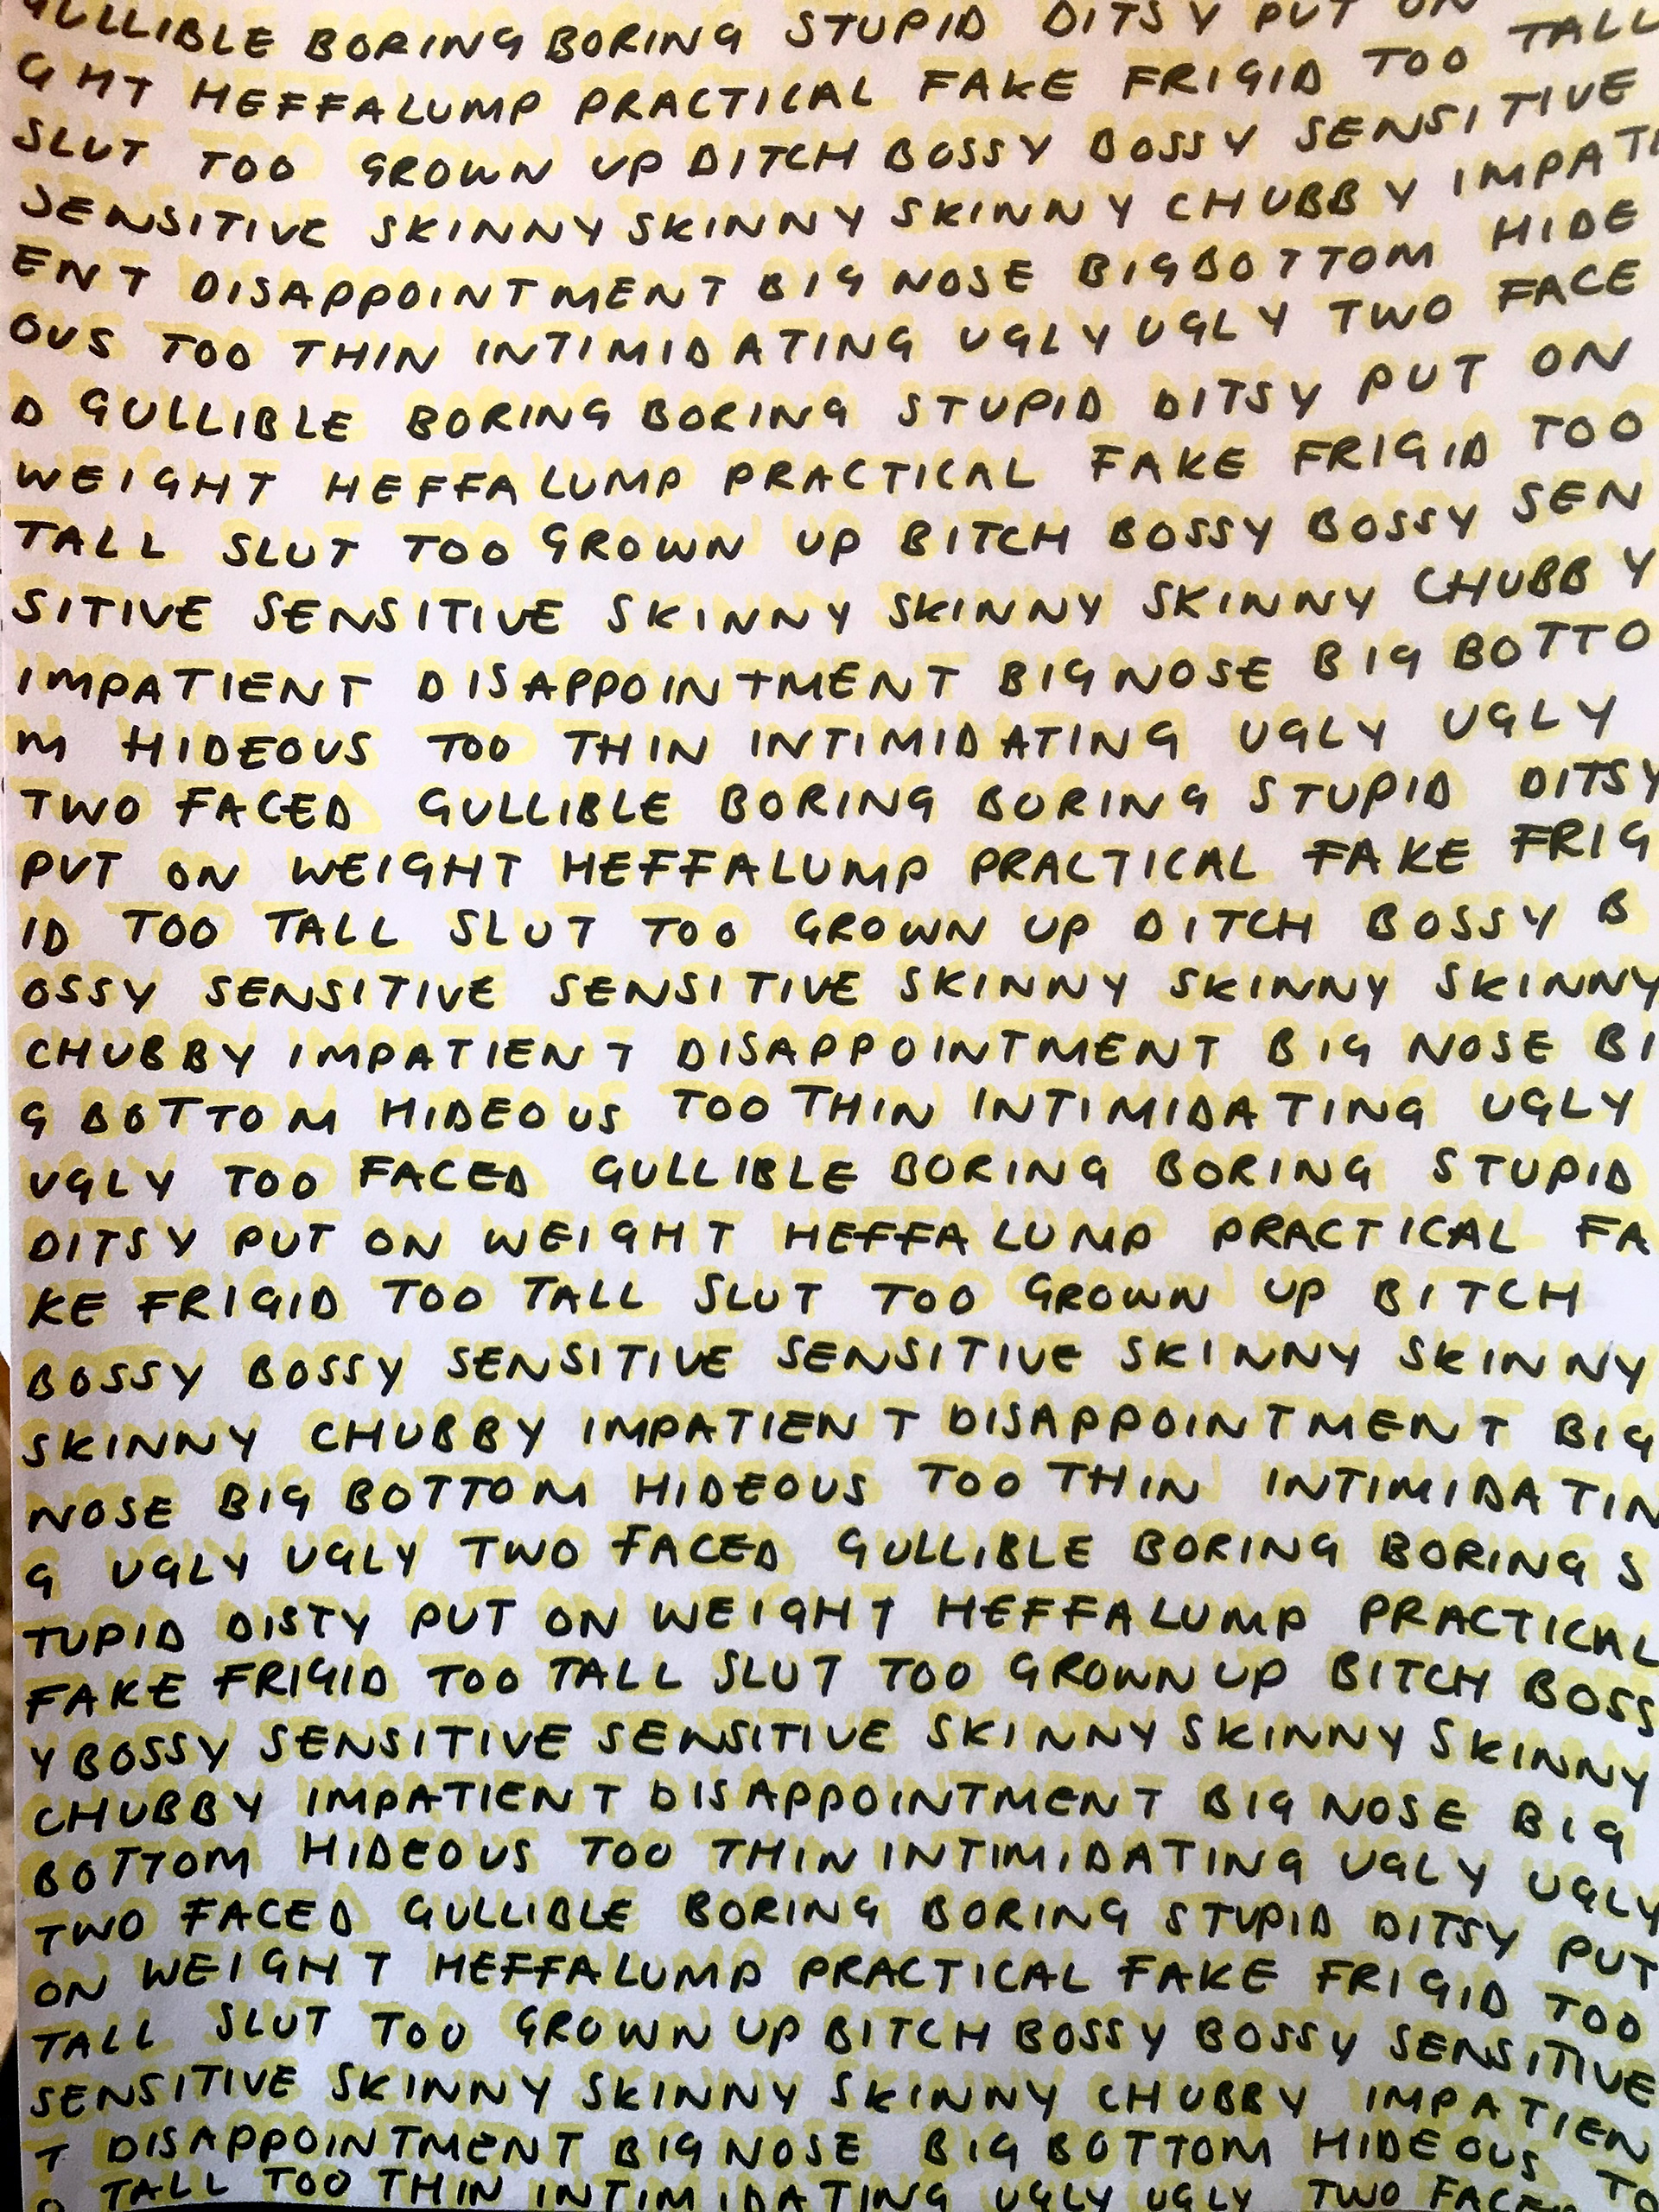 GULLIBLE BORING BORING STUPID DITSY PUT ON
GHT HEFFALUMP PRACTICAL FAKE FRIGID TOO TALL
SLUT TOO GROWN UP BITCH BOSSY BOSSY SENSITIVE
SENSITIVE SKINNY SKINNY SKINNY CHUBBY IMPATI
ENT DISAPPOINTMENT BIG NOSE BIG BOTTOM HIDE
OUS TOO THIN INTIMIDATING UGLY UGLY TWO FACE
D GULLIBLE BORING BORING STUPID DITSY PUT ON
WEIGHT HEFFALUMP PRACTICAL FAKE FRIGID TOO
TALL SLUT TOO GROWN UP BITCH BOSSY BOSSY SEN
SITIVE SENSITIVE SKINNY SKINNY SKINNY CHUBBY
IMPATIENT DISAPPOINTMENT BIG NOSE BIG BOTTO
M HIDEOUS TOO THIN INTIMIDATING UGLY UGLY
TWO FACED GULLIBLE BORING BORING STUPID DITSY
PUT ON WEIGHT HEFFALUMP PRACTICAL FAKE FRIG
ID TOO TALL SLUT TOO GROWN UP BITCH BOSSY B
OSSY SENSITIVE SENSITIVE SKINNY SKINNY SKINNY
CHUBBY IMPATIENT DISAPPOINTMENT BIG NOSE BI
G BOTTOM HIDEOUS TOO THIN INTIMIDATING UGLY
UGLY TOO FACED GULLIBLE BORING BORING STUPID
DITSY PUT ON WEIGHT HEFFALUMP PRACTICAL FA
KE FRIGID TOO TALL SLUT TOO GROWN UP BITCH
BOSSY BOSSY SENSITIVE SENSITIVE SKINNY SKINNY
SKINNY CHUBBY IMPATIENT DISAPPOINTMENT BIG
NOSE BIG BOTTOM HIDEOUS TOO THIN INTIMIDATIN
G UGLY UGLY TWO FACED GULLIBLE BORING BORING S
TUPID DISTY PUT ON WEIGHT HEFFALUMP PRACTICAL
FAKE FRIGID TOO TALL SLUT TOO GROWN UP BITCH BOSS
Y BOSSY SENSITIVE SENSITIVE SKINNY SKINNY SKINNY
CHUBBY IMPATIENT DISAPPOINTMENT BIG NOSE BIG
BOTTOM HIDEOUS TOO THIN INTIMIDATING UGLY UGLY
TWO FACED GULLIBLE BORING BORING STUPID DITSY PUT
ON WEIGHT HEFFALUMP PRACTICAL FAKE FRIGID TOO
TALL SLUT TOO GROWN UP BITCH BOSSY BOSSY SENSITIVE
SENSITIVE SKINNY SKINNY SKINNY CHUBBY IMPATIEN
T DISAPPOINTMENT BIG NOSE BIG BOTTOM HIDEOUS TO
O TALL TOO THIN INTIMIDATING UGLY UGLY TWO FACED